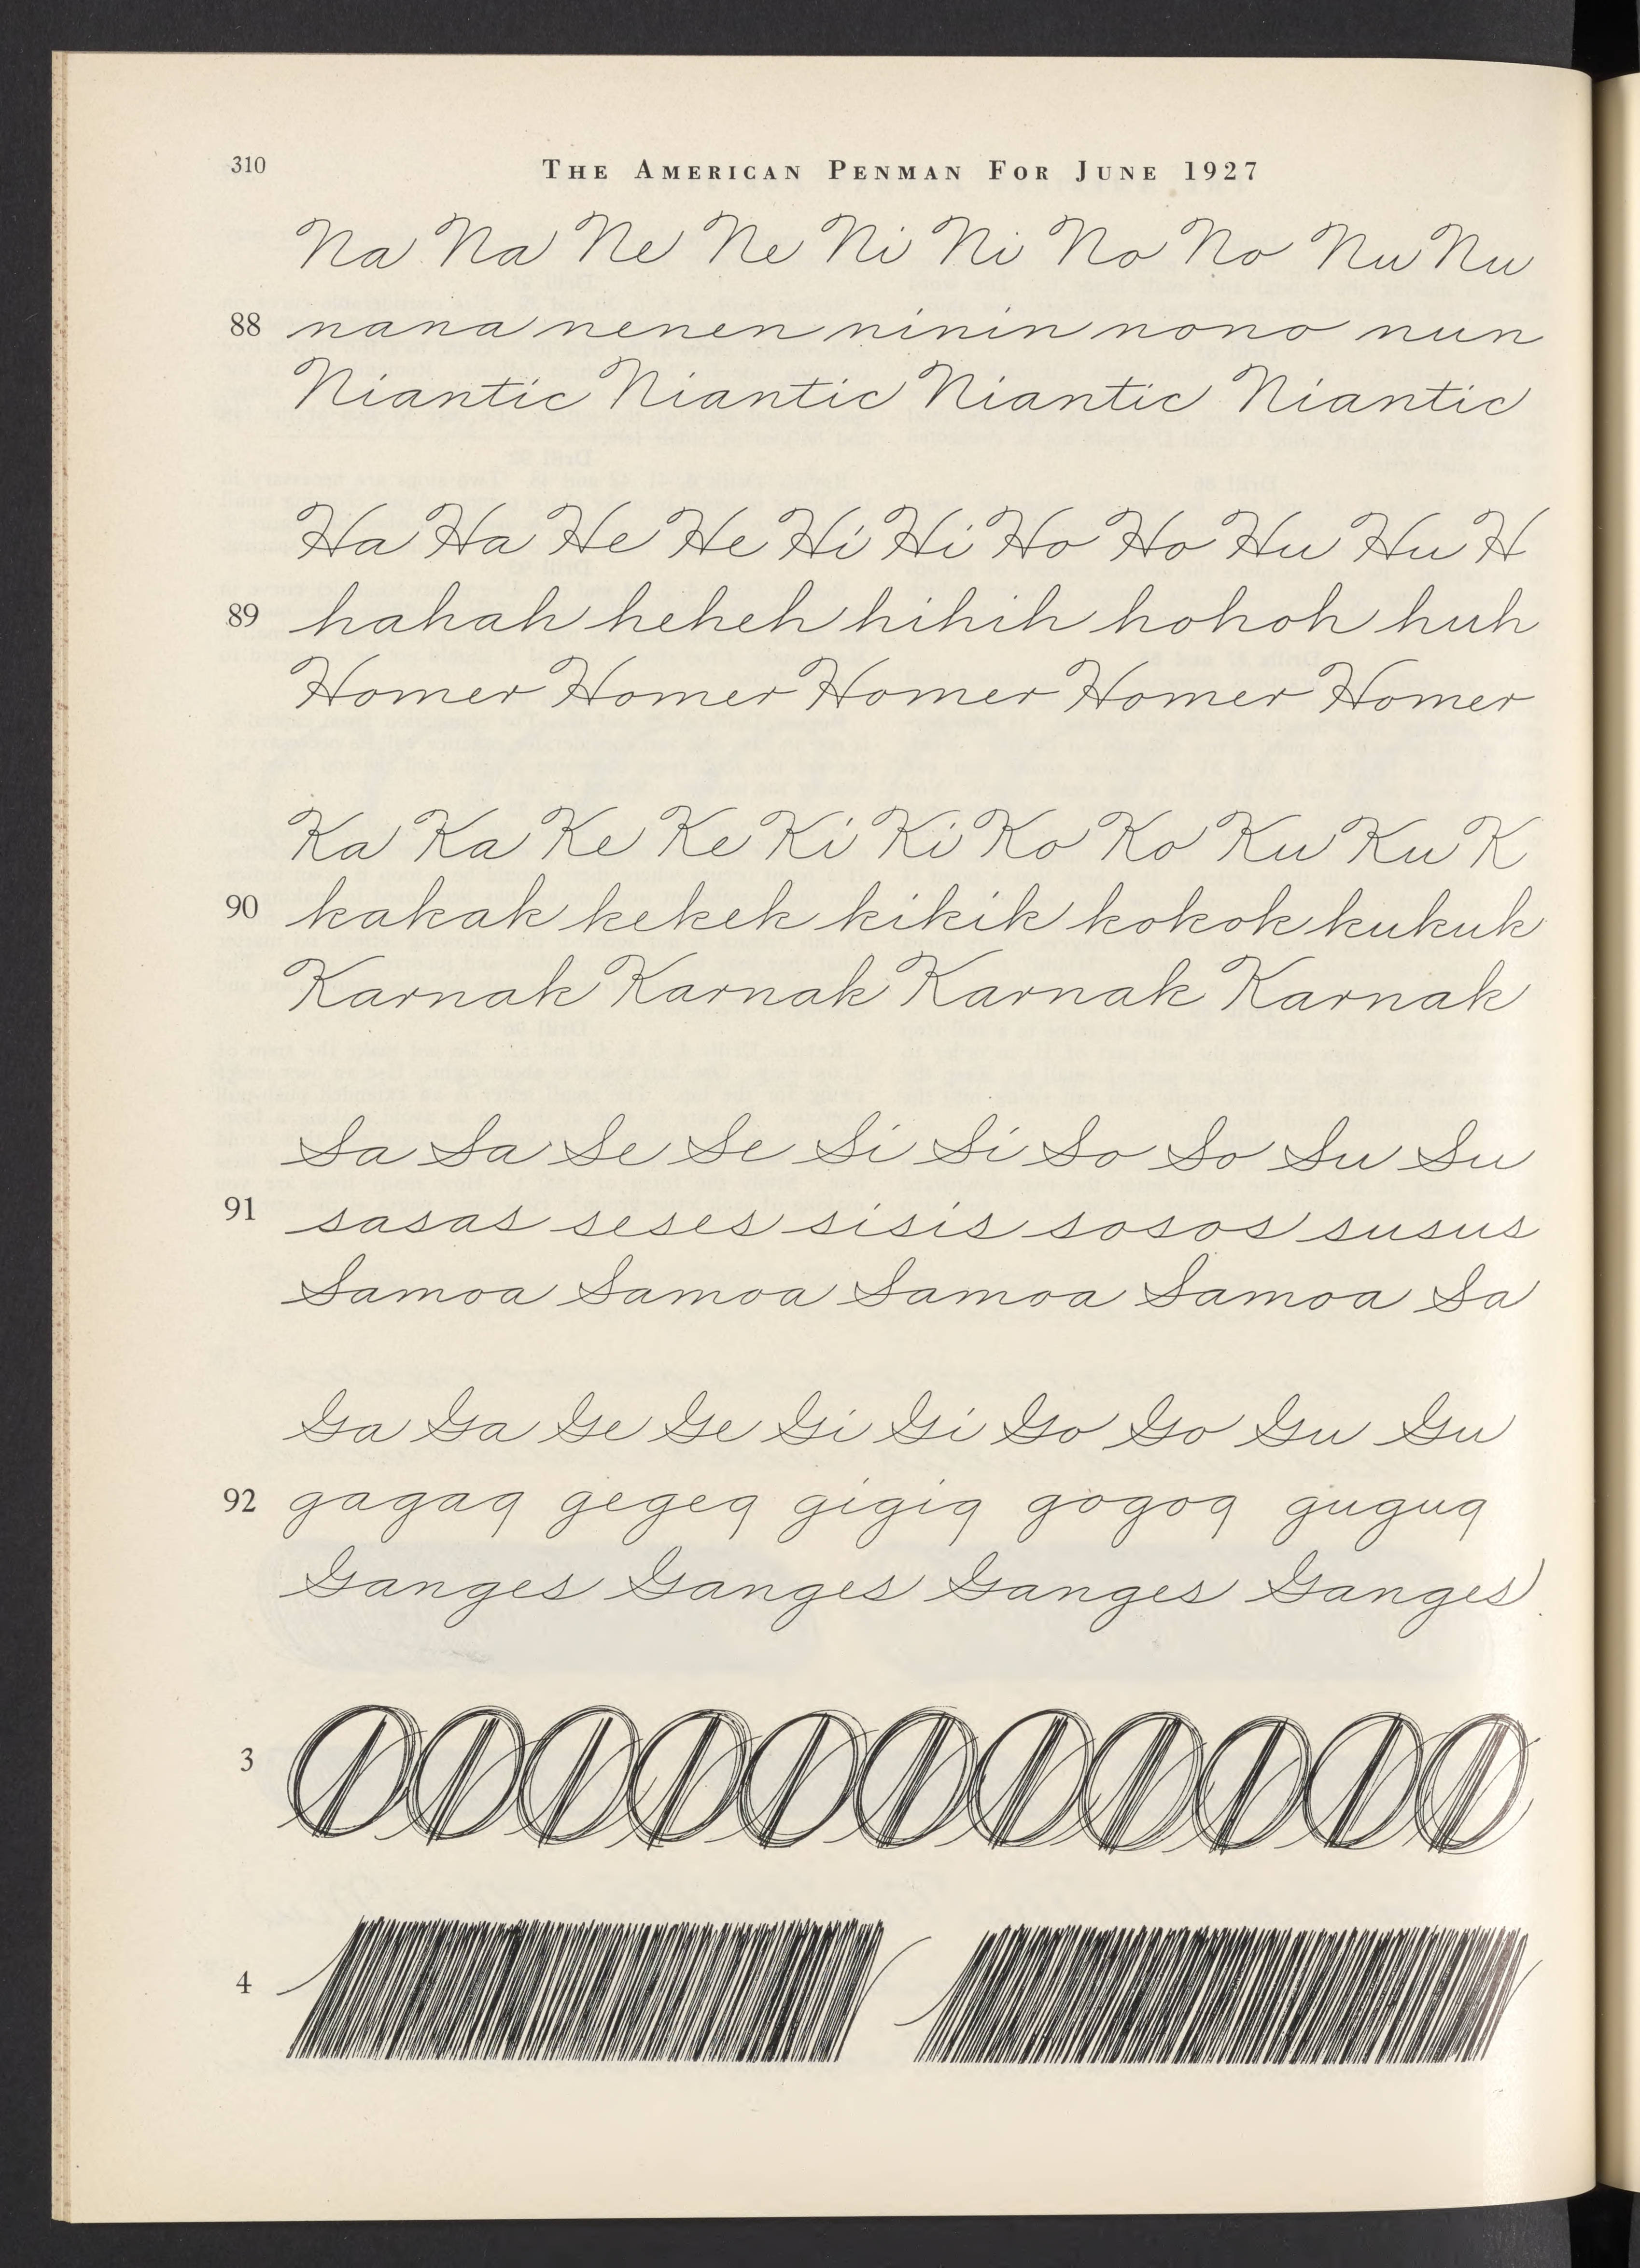 310 THE AMERICAN PENMAN FOR JUNE 1927
Na Na Ne Ne Ni Ni No No Nu Nu
88 nana nenen ninin nono nun
Niantic Niantic Niantic Niantic
Ha Ha He He Hi Hi Ho Ho Hu Hu H
89 hahah heheh hihih hohoh huh
Homer Homer Homer Homer Homer
Ka Ka Ke Ke Ki Ki Ko Ko Ku Ku K
90 kakak kekek kikik kokok kukuk
Karnak Karnak Karnak Karnak
Sa Sa Se Se Si Si So So Su Su
91 sasas seses sisis sosos susus
Samoa Samoa Samoa Samoa Sa
Ga Ga Ge Ge Gi Gi Go Go Gu Gu
92 gagag gegeg gigig gogog gugug
Ganges Ganges Ganges Ganges
3
4